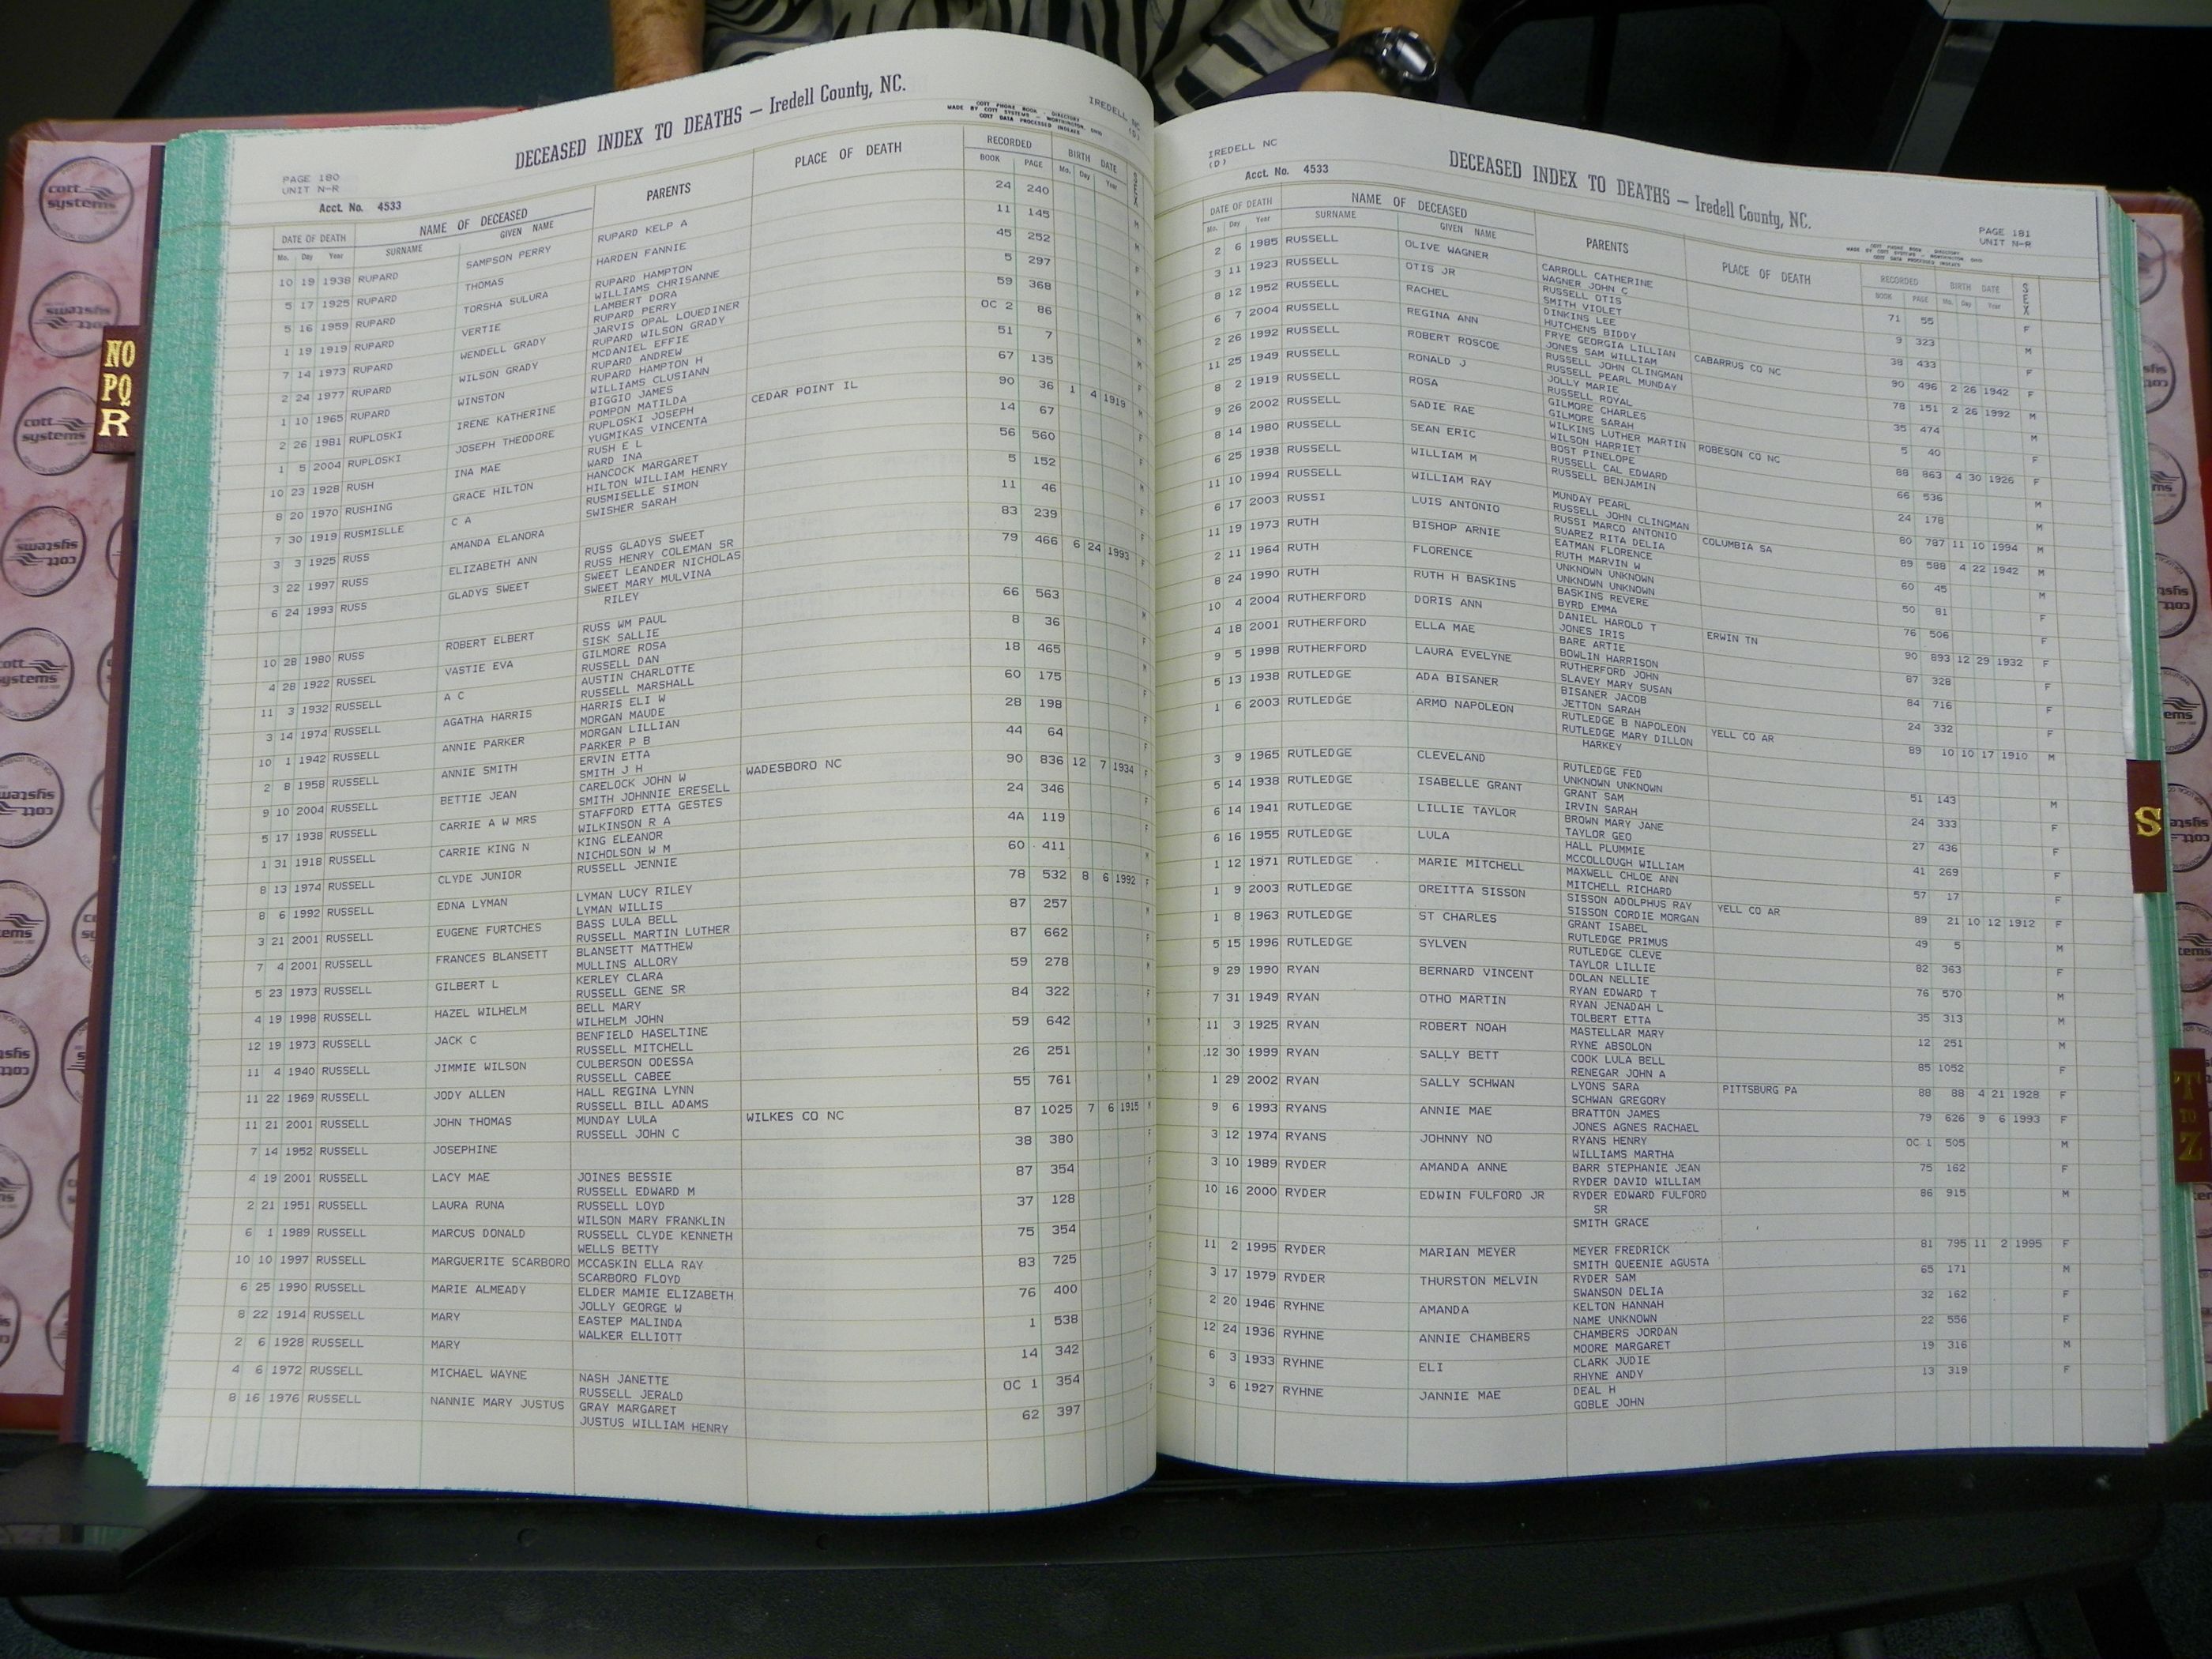 DECEASED INDEX TO DEATHS — Iredell County, NC.
COTT PHONE BOOK - DIRECTORY
MADE BY COTT SYSTEMS - WORTHINGTON, OHIO
COTT DATA PROCESSED INDEXES
IREDELL NC
(D)
PAGE 180
UNIT N-R
Acct. No. 4533
DATE OF DEATH NAME OF DECEASED PARENTS PLACE OF DEATH RECORDED BIRTH DATE SEX
Mo. Day Year SURNAME GIVEN NAME BOOK PAGE Mo. Day Year
10 19 1938 RUPARD SAMPSON PERRY RUPARD KELP A 24 240
HARDEN FANNIE
5 17 1925 RUPARD THOMAS 11 145 M
5 16 1959 RUPARD TORSHA SULURA RUPARD HAMPTON 45 252
WILLIAMS CHRISANNE
1 19 1919 RUPARD VERTIE LAMBERT DORA 5 297
RUPARD PERRY
7 14 1973 RUPARD WENDELL GRADY JARVIS OPAL LOUEDINER 59 368
RUPARD WILSON GRADY
2 24 1977 RUPARD WILSON GRADY MCDANIEL EFFIE OC 2 86
RUPARD ANDREW
1 10 1965 RUPARD WINSTON RUPARD HAMPTON H 51 7
WILLIAMS CLUSIANN
2 26 1981 RUPLOSKI IRENE KATHERINE BIGGIO JAMES 67 135
POMPON MATILDA
1 5 2004 RUPLOSKI JOSEPH THEODORE RUPLOSKI JOSEPH CEDAR POINT IL 90 36 1 4 1919
YUGMIKAS VINCENTA
10 23 1928 RUSH INA MAE RUSH E L 14 67
WARD INA
8 20 1970 RUSHING GRACE HILTON HANCOCK MARGARET 56 560
HILTON WILLIAM HENRY
7 30 1919 RUSMISLLE C A RUSMISELLE SIMON 5 152
SWISHER SARAH
3 3 1925 RUSS AMANDA ELANORA 11 46
3 22 1997 RUSS ELIZABETH ANN RUSS GLADYS SWEET 83 239
RUSS HENRY COLEMAN SR
6 24 1993 RUSS GLADYS SWEET SWEET LEANDER NICHOLAS 79 466 6 24 1993
SWEET MARY MULVINA
RILEY
10 28 1980 RUSS ROBERT ELBERT RUSS WM PAUL 66 563
SISK SALLIE
4 28 1922 RUSSEL VASTIE EVA GILMORE ROSA 8 36
RUSSELL DAN
11 3 1932 RUSSELL A C AUSTIN CHARLOTTE 18 465
RUSSELL MARSHALL
3 14 1974 RUSSELL AGATHA HARRIS HARRIS ELI W 60 175
MORGAN MAUDE
10 1 1942 RUSSELL ANNIE PARKER MORGAN LILLIAN 28 198
PARKER P B
2 8 1958 RUSSELL ANNIE SMITH ERVIN ETTA 44 64
SMITH J H
9 10 2004 RUSSELL BETTIE JEAN CARELOCK JOHN W WADESBORO NC 90 836 12 7 1934 F
SMITH JOHNNIE ERESELL
5 17 1938 RUSSELL CARRIE A W MRS STAFFORD ETTA GESTES 24 346
WILKINSON R A
1 31 1918 RUSSELL CARRIE KING N KING ELEANOR 4A 119
NICHOLSON W M
8 13 1974 RUSSELL CLYDE JUNIOR RUSSELL JENNIE 60 411
8 6 1992 RUSSELL EDNA LYMAN LYMAN LUCY RILEY 78 532 8 6 1992 F
LYMAN WILLIS
3 21 2001 RUSSELL EUGENE FURTCHES BASS LULA BELL 87 257
RUSSELL MARTIN LUTHER
7 4 2001 RUSSELL FRANCES BLANSETT BLANSETT MATTHEW 87 662
MULLINS ALLORY
5 23 1973 RUSSELL GILBERT L KERLEY CLARA 59 278
RUSSELL GENE SR
4 19 1998 RUSSELL HAZEL WILHELM BELL MARY 84 322
WILHELM JOHN
12 19 1973 RUSSELL JACK C BENFIELD HASELTINE 59 642
RUSSELL MITCHELL
11 4 1940 RUSSELL JIMMIE WILSON CULBERSON ODESSA 26 251
RUSSELL CABEE
11 22 1969 RUSSELL JODY ALLEN HALL REGINA LYNN 55 761
RUSSELL BILL ADAMS
11 21 2001 RUSSELL JOHN THOMAS MUNDAY LULA WILKES CO NC 87 1025 7 6 1915 M
RUSSELL JOHN C
7 14 1952 RUSSELL JOSEPHINE 38 380
4 19 2001 RUSSELL LACY MAE JOINES BESSIE 87 354
RUSSELL EDWARD M
2 21 1951 RUSSELL LAURA RUNA RUSSELL LOYD 37 128
WILSON MARY FRANKLIN
6 1 1989 RUSSELL MARCUS DONALD RUSSELL CLYDE KENNETH 75 354
WELLS BETTY
10 10 1997 RUSSELL MARGUERITE SCARBORO MCCASKIN ELLA RAY 83 725
SCARBORO FLOYD
6 25 1990 RUSSELL MARIE ALMEADY ELDER MAMIE ELIZABETH 76 400
JOLLY GEORGE W
8 22 1914 RUSSELL MARY EASTEP MALINDA 1 538
WALKER ELLIOTT
2 6 1928 RUSSELL MARY 14 342
4 6 1972 RUSSELL MICHAEL WAYNE NASH JANETTE OC 1 354
RUSSELL JERALD
8 16 1976 RUSSELL NANNIE MARY JUSTUS GRAY MARGARET 62 397
JUSTUS WILLIAM HENRY
IREDELL NC
(D)
Acct. No. 4533
DECEASED INDEX TO DEATHS — Iredell County, NC.
PAGE 181
UNIT N-R
COTT PHONE BOOK - DIRECTORY
MADE BY COTT SYSTEMS - WORTHINGTON, OHIO
COTT DATA PROCESSED INDEXES
DATE OF DEATH NAME OF DECEASED PARENTS PLACE OF DEATH RECORDED BIRTH DATE SEX
Mo. Day Year SURNAME GIVEN NAME BOOK PAGE Mo. Day Year
2 6 1985 RUSSELL OLIVE WAGNER CARROLL CATHERINE 71 55 F
WAGNER JOHN C
3 11 1923 RUSSELL OTIS JR RUSSELL OTIS 9 323 M
SMITH VIOLET
8 12 1952 RUSSELL RACHEL DINKINS LEE 38 433 F
HUTCHENS BIDDY
6 7 2004 RUSSELL REGINA ANN FRYE GEORGIA LILLIAN CABARRUS CO NC 90 496 2 26 1942 F
JONES SAM WILLIAM
2 26 1992 RUSSELL ROBERT ROSCOE RUSSELL JOHN CLINGMAN 78 151 2 26 1992 M
RUSSELL PEARL MUNDAY
11 25 1949 RUSSELL RONALD J JOLLY MARIE 35 474 M
RUSSELL ROYAL
8 2 1919 RUSSELL ROSA GILMORE CHARLES 5 40 F
GILMORE SARAH
9 26 2002 RUSSELL SADIE RAE WILKINS LUTHER MARTIN ROBESON CO NC 88 863 4 30 1926 F
WILSON HARRIET
8 14 1980 RUSSELL SEAN ERIC BOST PINELOPE 66 536 M
RUSSELL CAL EDWARD
6 25 1938 RUSSELL WILLIAM M RUSSELL BENJAMIN 24 178 M
11 10 1994 RUSSELL WILLIAM RAY MUNDAY PEARL 80 787 11 10 1994 M
RUSSELL JOHN CLINGMAN
6 17 2003 RUSSI LUIS ANTONIO RUSSI MARCO ANTONIO COLUMBIA SA 89 588 4 22 1942 M
SUAREZ RITA DELIA
11 19 1973 RUTH BISHOP ARNIE EATMAN FLORENCE 60 45 M
RUTH MARVIN W
2 11 1964 RUTH FLORENCE UNKNOWN UNKNOWN 50 81 F
UNKNOWN UNKNOWN
8 24 1990 RUTH RUTH H BASKINS BASKINS REVERE 76 506 F
BYRD EMMA
10 4 2004 RUTHERFORD DORIS ANN DANIEL HAROLD T ERWIN TN 90 893 12 29 1932 F
JONES IRIS
4 18 2001 RUTHERFORD ELLA MAE BARE ARTIE 87 328 F
BOWLIN HARRISON
9 5 1998 RUTHERFORD LAURA EVELYNE RUTHERFORD JOHN 84 716 F
SLAVEY MARY SUSAN
5 13 1938 RUTLEDGE ADA BISANER BISANER JACOB 24 332 F
JETTON SARAH
1 6 2003 RUTLEDGE ARMO NAPOLEON RUTLEDGE B NAPOLEON YELL CO AR 89 10 10 17 1910 M
RUTLEDGE MARY DILLON
HARKEY
3 9 1965 RUTLEDGE CLEVELAND RUTLEDGE FED 51 143 M
UNKNOWN UNKNOWN
5 14 1938 RUTLEDGE ISABELLE GRANT GRANT SAM 24 333 F
IRVIN SARAH
6 14 1941 RUTLEDGE LILLIE TAYLOR BROWN MARY JANE 27 436 F
TAYLOR GEO
6 16 1955 RUTLEDGE LULA HALL PLUMMIE 41 269 F
MCCOLLOUGH WILLIAM
1 12 1971 RUTLEDGE MARIE MITCHELL MAXWELL CHLOE ANN 57 17 F
MITCHELL RICHARD
1 9 2003 RUTLEDGE OREITTA SISSON SISSON ADOLPHUS RAY YELL CO AR 89 21 10 12 1912 F
SISSON CORDIE MORGAN
1 8 1963 RUTLEDGE ST CHARLES GRANT ISABEL 49 5 M
RUTLEDGE PRIMUS
5 15 1996 RUTLEDGE SYLVEN RUTLEDGE CLEVE 82 363 F
TAYLOR LILLIE
9 29 1990 RYAN BERNARD VINCENT DOLAN NELLIE 76 570 M
RYAN EDWARD T
7 31 1949 RYAN OTHO MARTIN RYAN JENADAH L 35 313 M
TOLBERT ETTA
11 3 1925 RYAN ROBERT NOAH MASTELLAR MARY 12 251 M
RYNE ABSOLON
12 30 1999 RYAN SALLY BETT COOK LULA BELL 85 1052 F
RENEGAR JOHN A
1 29 2002 RYAN SALLY SCHWAN LYONS SARA PITTSBURG PA 88 88 4 21 1928 F
SCHWAN GREGORY
9 6 1993 RYANS ANNIE MAE BRATTON JAMES 79 626 9 6 1993 F
JONES AGNES RACHAEL
3 12 1974 RYANS JOHNNY NO RYANS HENRY OC 1 505 M
WILLIAMS MARTHA
3 10 1989 RYDER AMANDA ANNE BARR STEPHANIE JEAN 75 162 F
RYDER DAVID WILLIAM
10 16 2000 RYDER EDWIN FULFORD JR RYDER EDWARD FULFORD 86 915 M
SR
SMITH GRACE
11 2 1995 RYDER MARIAN MEYER MEYER FREDRICK 81 795 11 2 1995 F
SMITH QUEENIE AGUSTA
3 17 1979 RYDER THURSTON MELVIN RYDER SAM 65 171 M
SWANSON DELIA
2 20 1946 RYHNE AMANDA KELTON HANNAH 32 162 F
NAME UNKNOWN
12 24 1936 RYHNE ANNIE CHAMBERS CHAMBERS JORDAN 22 556 F
MOORE MARGARET
6 3 1933 RYHNE ELI CLARK JUDIE 19 316 M
RHYNE ANDY
3 6 1927 RYHNE JANNIE MAE DEAL H 13 319 F
GOBLE JOHN
NO
PQ
R
S
T
TO
Z
cott
systems